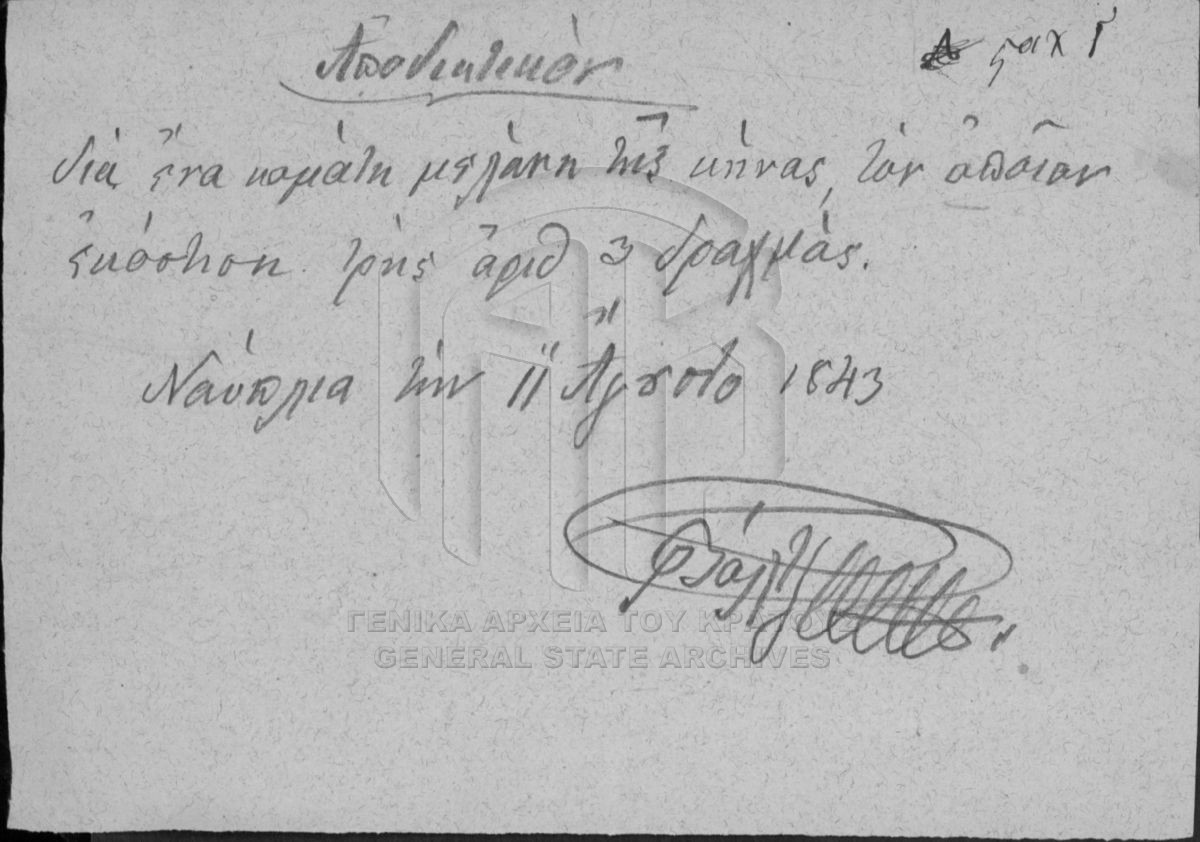 Αποδικτικὸν
διὰ ἕνα κομάτι μελάνη τῆς κήνας, τὸν ὁποῖον
ἐκόστισι τρῆς ἀριθ 3 δραχμάς.
Ναύπλια τὴν 11 Αὔγουστο 1843
ΓΕΝΙΚΑ ΑΡΧΕΙΑ ΤΟΥ ΚΡΑΤΟΥΣ
GENERAL STATE ARCHIVES